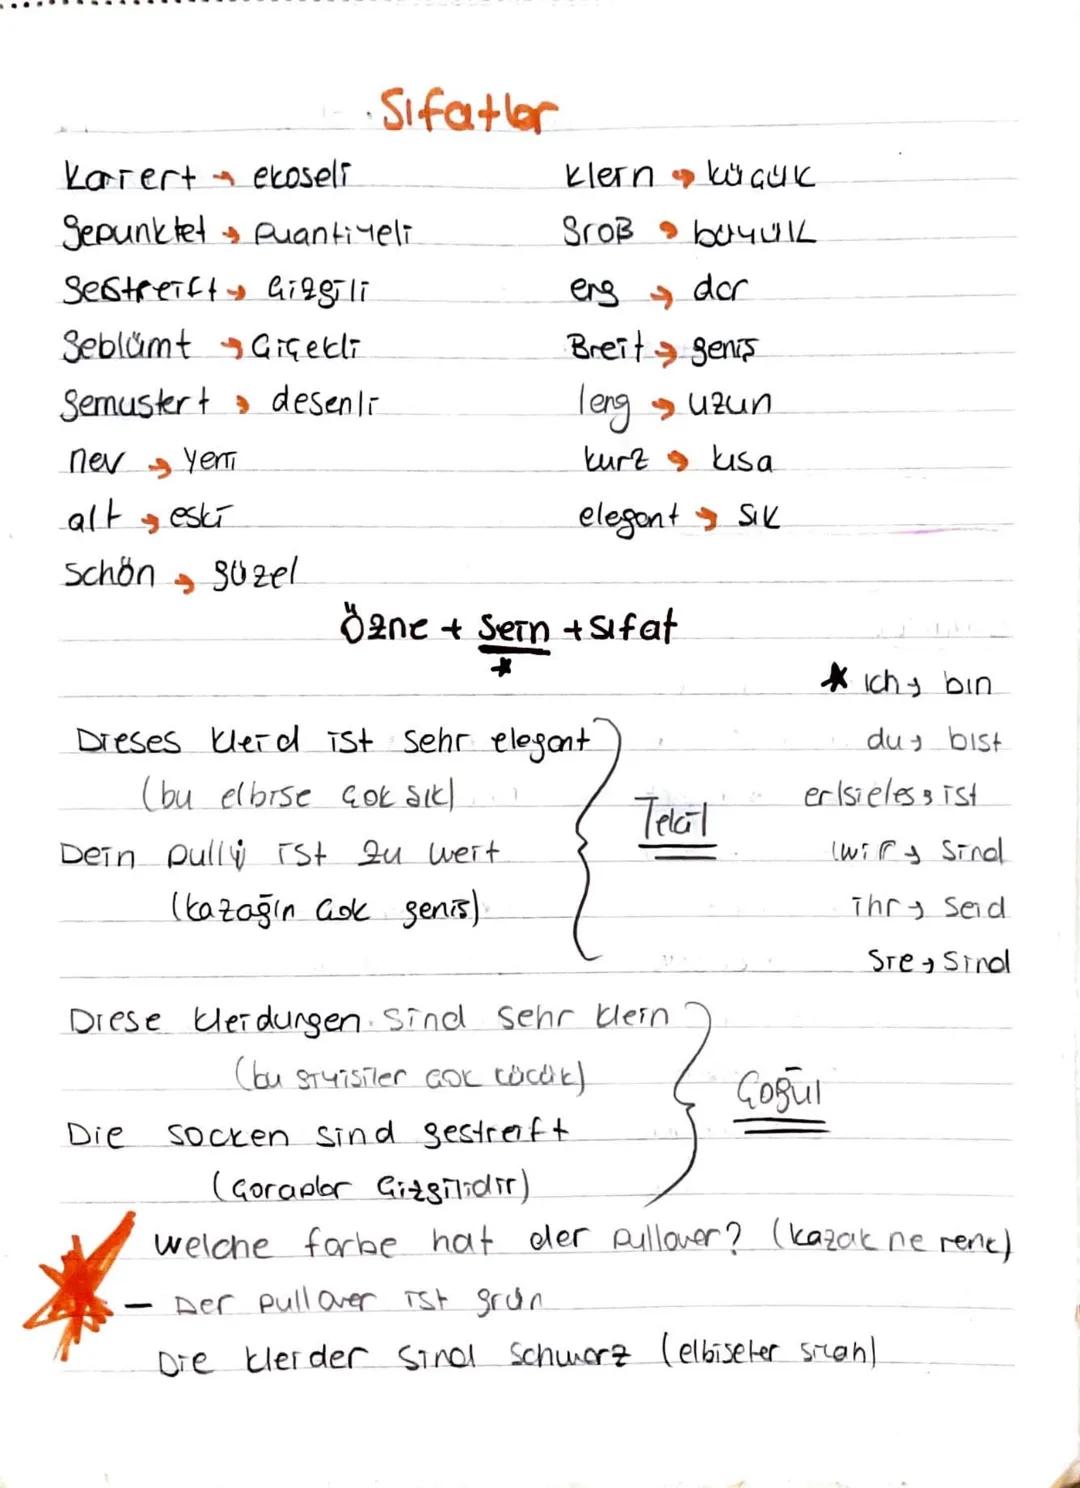 Sıfatlar
Kariert → ekoseli
gepunktet → puantiyeli
Gestreift → Çizgili
Geblümt → Çiçekli
Gemustert → desenli
neu → yeni
alt → eski
schön → güzel
klein → küçük
groß → büyük
eng → dar
Breit → geniş
leng → uzun
kurz → kısa
elegant → şık
Özne + Sein + sıfat
*
* ich → bin
du → bist
er/sie/es → ist
wir → sind
ihr → Seid
Sie → Sind
Dieses kleid ist sehr elegant
(bu elbise çok şık)
Dein pulli ist zu weit
(kazağın çok geniş)
Tekil
Diese kleidungen sind sehr klein
(bu giyisiler çok küçük)
Die socken sind gestreift
(Çoraplar Çizgilidir)
Çoğul
Welche farbe hat der pullover? (kazak ne renk)
- Der pullover ist grün
Die kleider sind schwarz (elbiseler siyah)